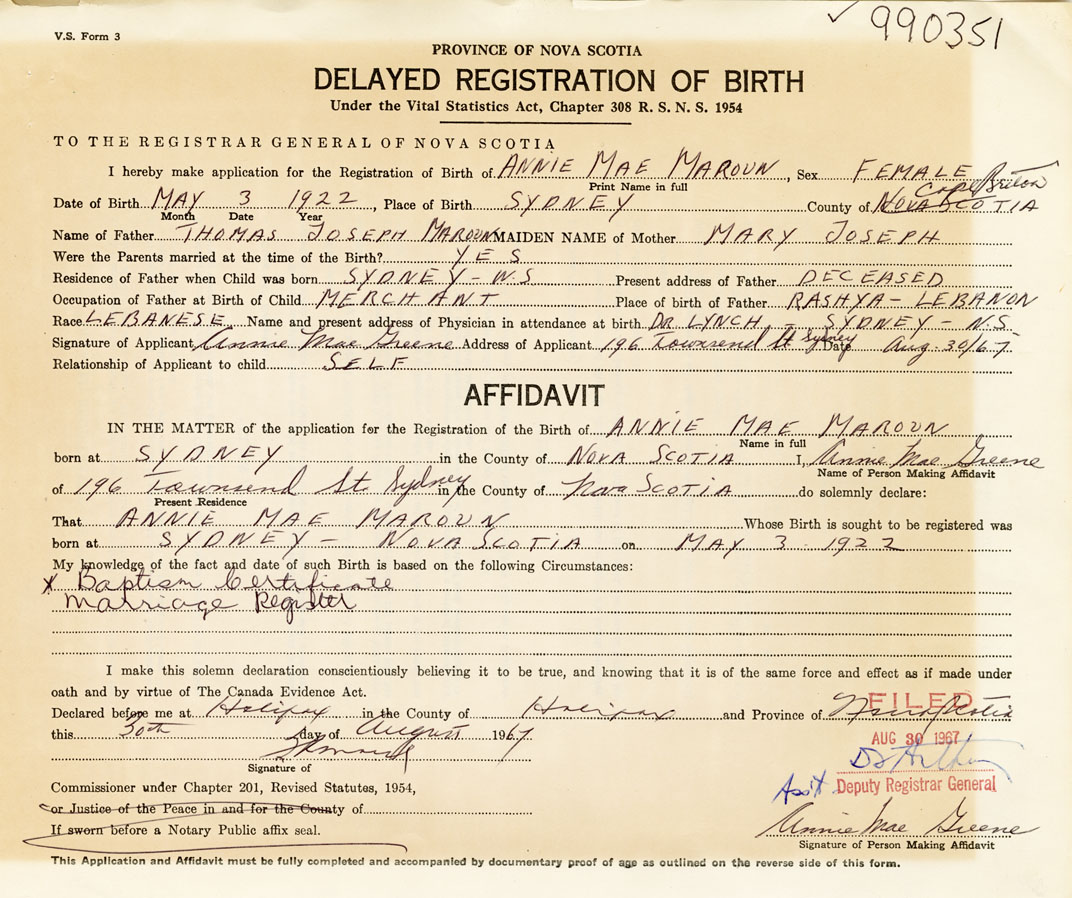 ✓ 990351
V.S. Form 3
PROVINCE OF NOVA SCOTIA
DELAYED REGISTRATION OF BIRTH
Under the Vital Statistics Act, Chapter 308 R. S. N. S. 1954
TO THE REGISTRAR GENERAL OF NOVA SCOTIA
I hereby make application for the Registration of Birth of ANNIE MAE MAROUN, Sex FEMALE
Print Name in full
Cape Breton
Date of Birth MAY 3 1922, Place of Birth SYDNEY County of NOVA SCOTIA
Month Date Year
Name of Father THOMAS JOSEPH MAROUN MAIDEN NAME of Mother MARY JOSEPH
Were the Parents married at the time of the Birth? YES
Residence of Father when Child was born SYDNEY - N.S Present address of Father DECEASED
Occupation of Father at Birth of Child MERCHANT Place of birth of Father RASHYA - LEBANON
Race LEBANESE Name and present address of Physician in attendance at birth DR LYNCH - SYDNEY - N.S.
Signature of Applicant Annie Mae Greene Address of Applicant 196 Townsend St Sydney Date Aug. 30/67
Relationship of Applicant to child SELF
AFFIDAVIT
IN THE MATTER of the application for the Registration of the Birth of ANNIE MAE MAROUN
Name in full
born at SYDNEY in the County of NOVA SCOTIA I, Annie Mae Greene
Name of Person Making Affidavit
of 196 Townsend St. Sydney in the County of Nova SCOTIA do solemnly declare:
Present Residence
That ANNIE MAE MAROUN Whose Birth is sought to be registered was
born at SYDNEY - NOVA SCOTIA on MAY 3 1922
My knowledge of the fact and date of such Birth is based on the following Circumstances:
x Baptism Certificate
Marriage Register
I make this solemn declaration conscientiously believing it to be true, and knowing that it is of the same force and effect as if made under
oath and by virtue of The Canada Evidence Act.
Declared before me at Halifax in the County of Halifax and Province of Nova Scotia
FILED
this 30th day of August 1967
AUG 30 1967
Signature of
Ass't Deputy Registrar General
Commissioner under Chapter 201, Revised Statutes, 1954,
or Justice of the Peace in and for the County of
If sworn before a Notary Public affix seal.
Annie Mae Greene
Signature of Person Making Affidavit
This Application and Affidavit must be fully completed and accompanied by documentary proof of age as outlined on the reverse side of this form.